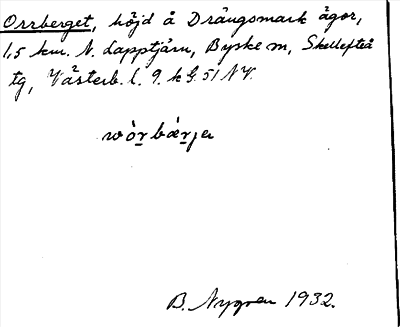 Orrberget, höjd å Drängsmark ägor,
1,5 km. N. Lapptjärn, Byske sn, Skellefteå
tg, Västerb. l. g. k G. 51 NV.
wòr̲bær̲ɟa
B. Nygren 1932.